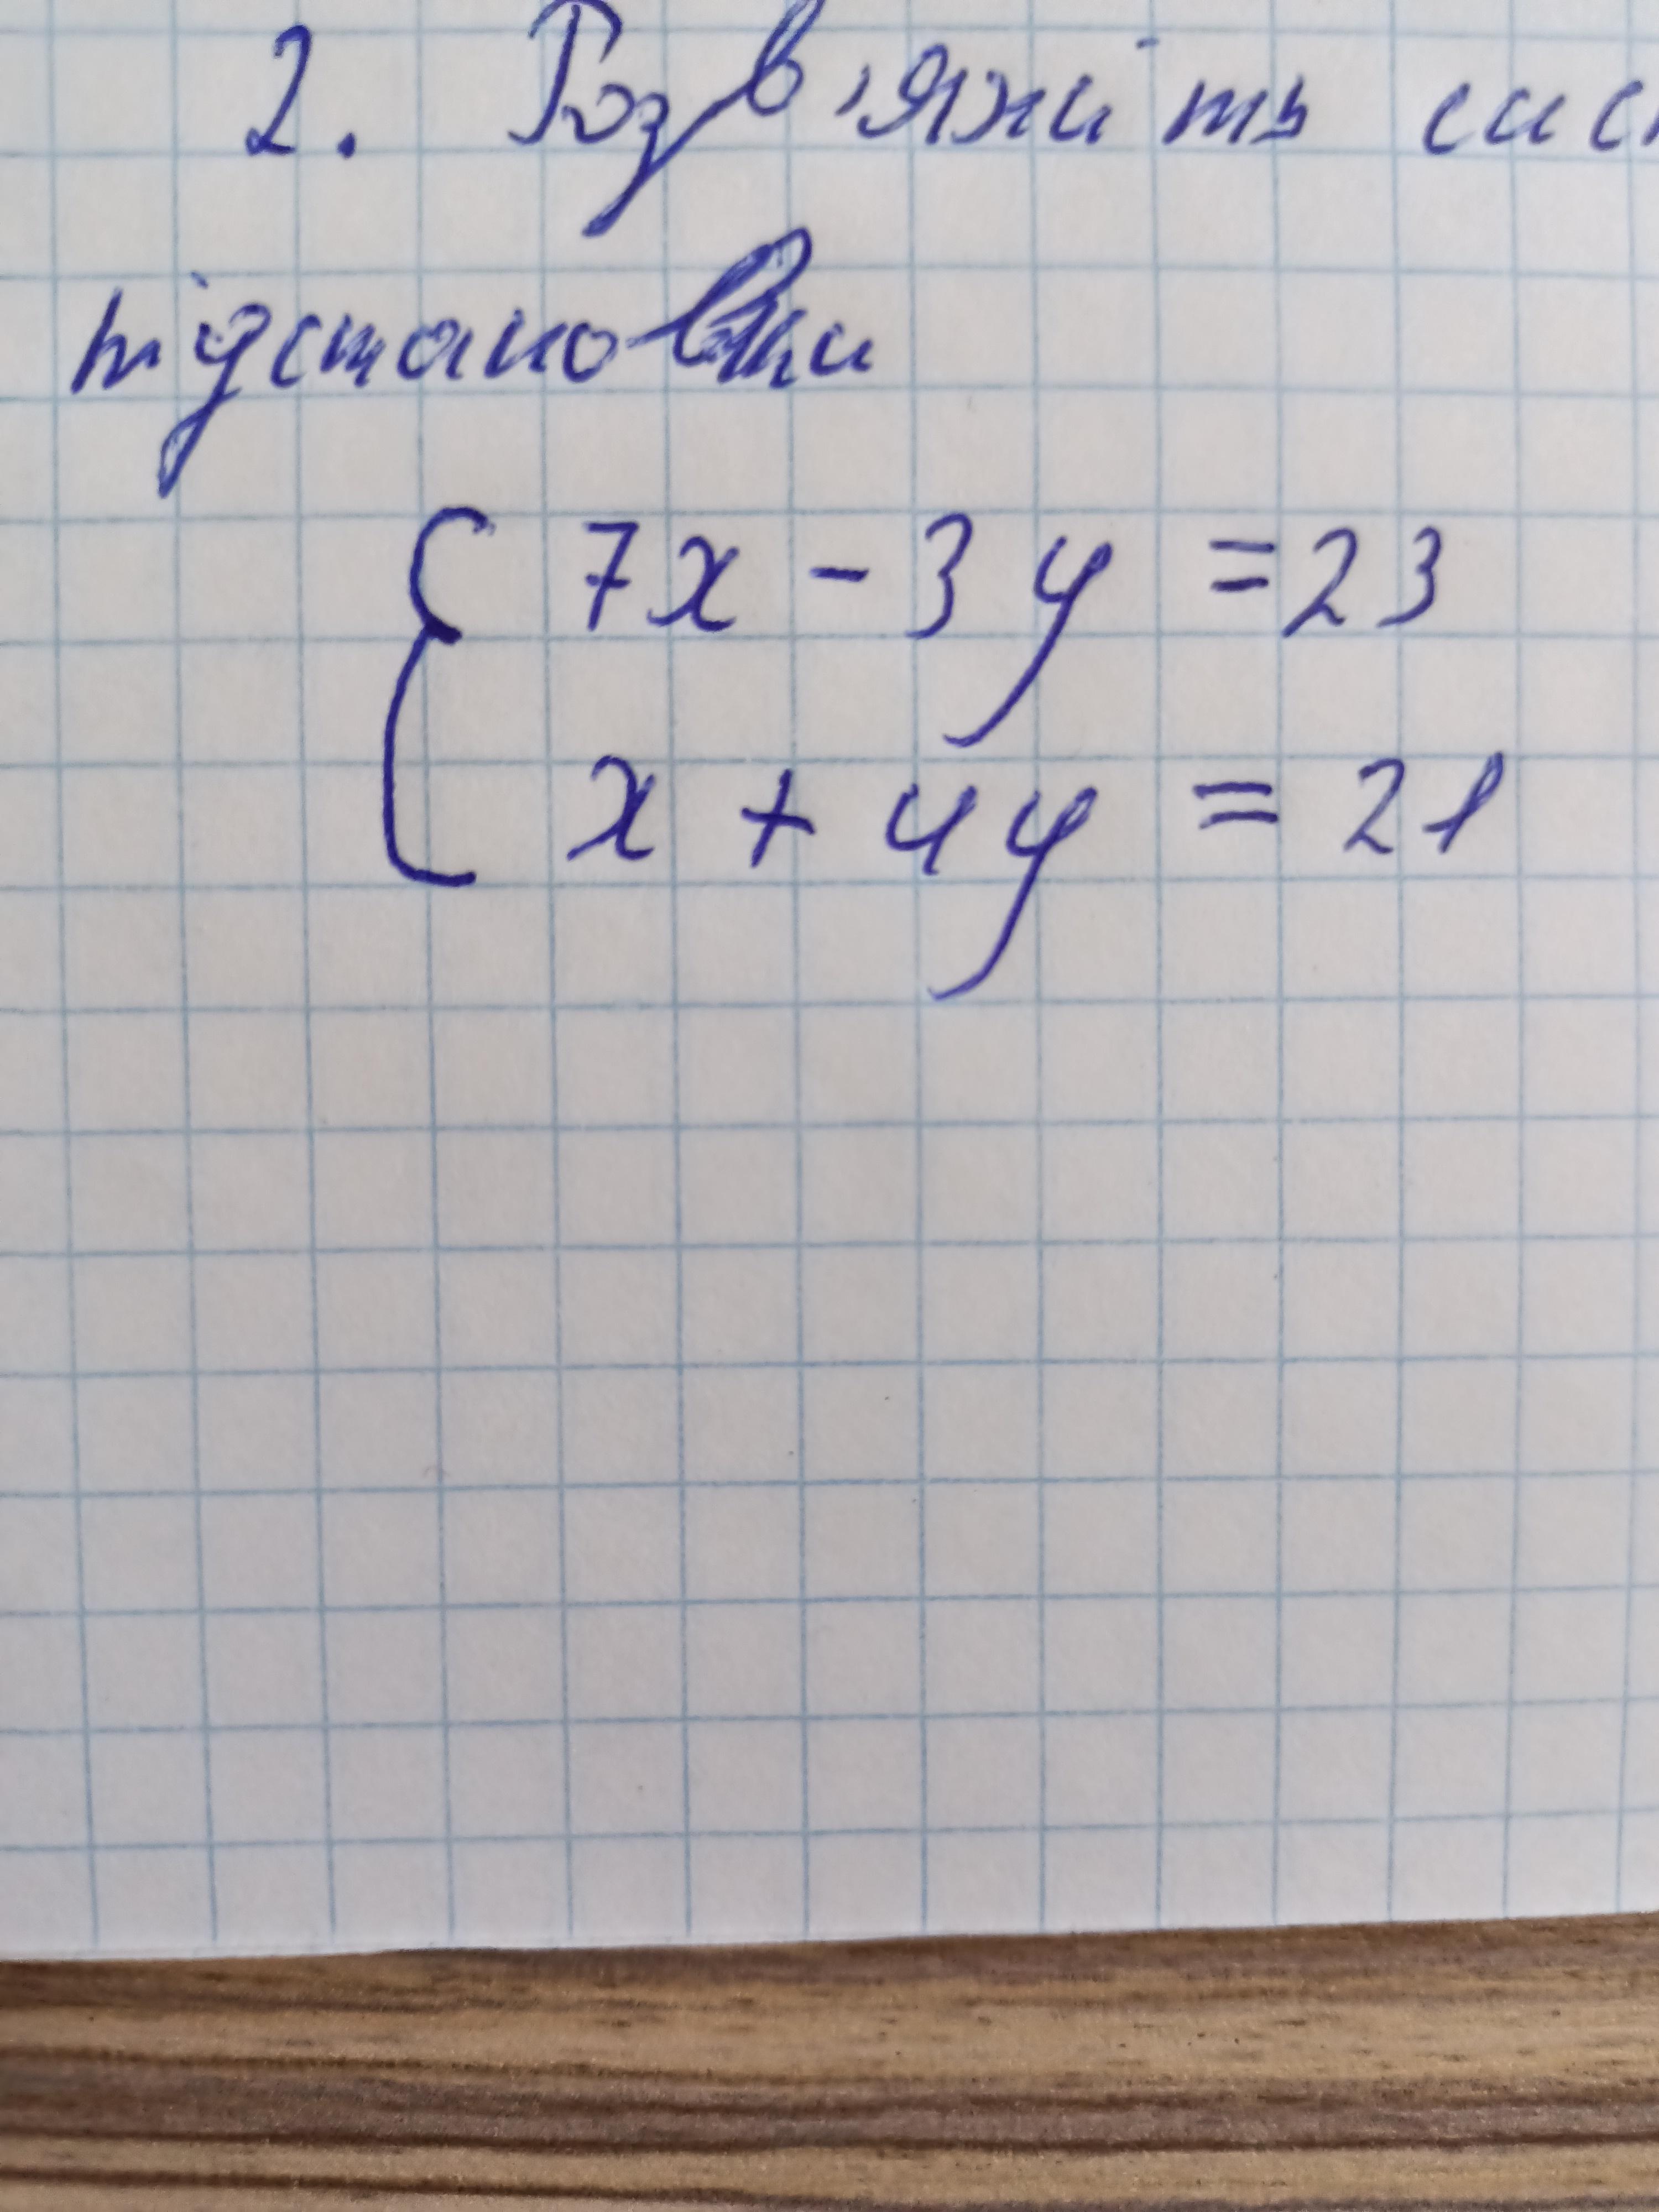 2. Розв'яжіть сис
підстановки
7x - 3y = 23
x + 4y = 21